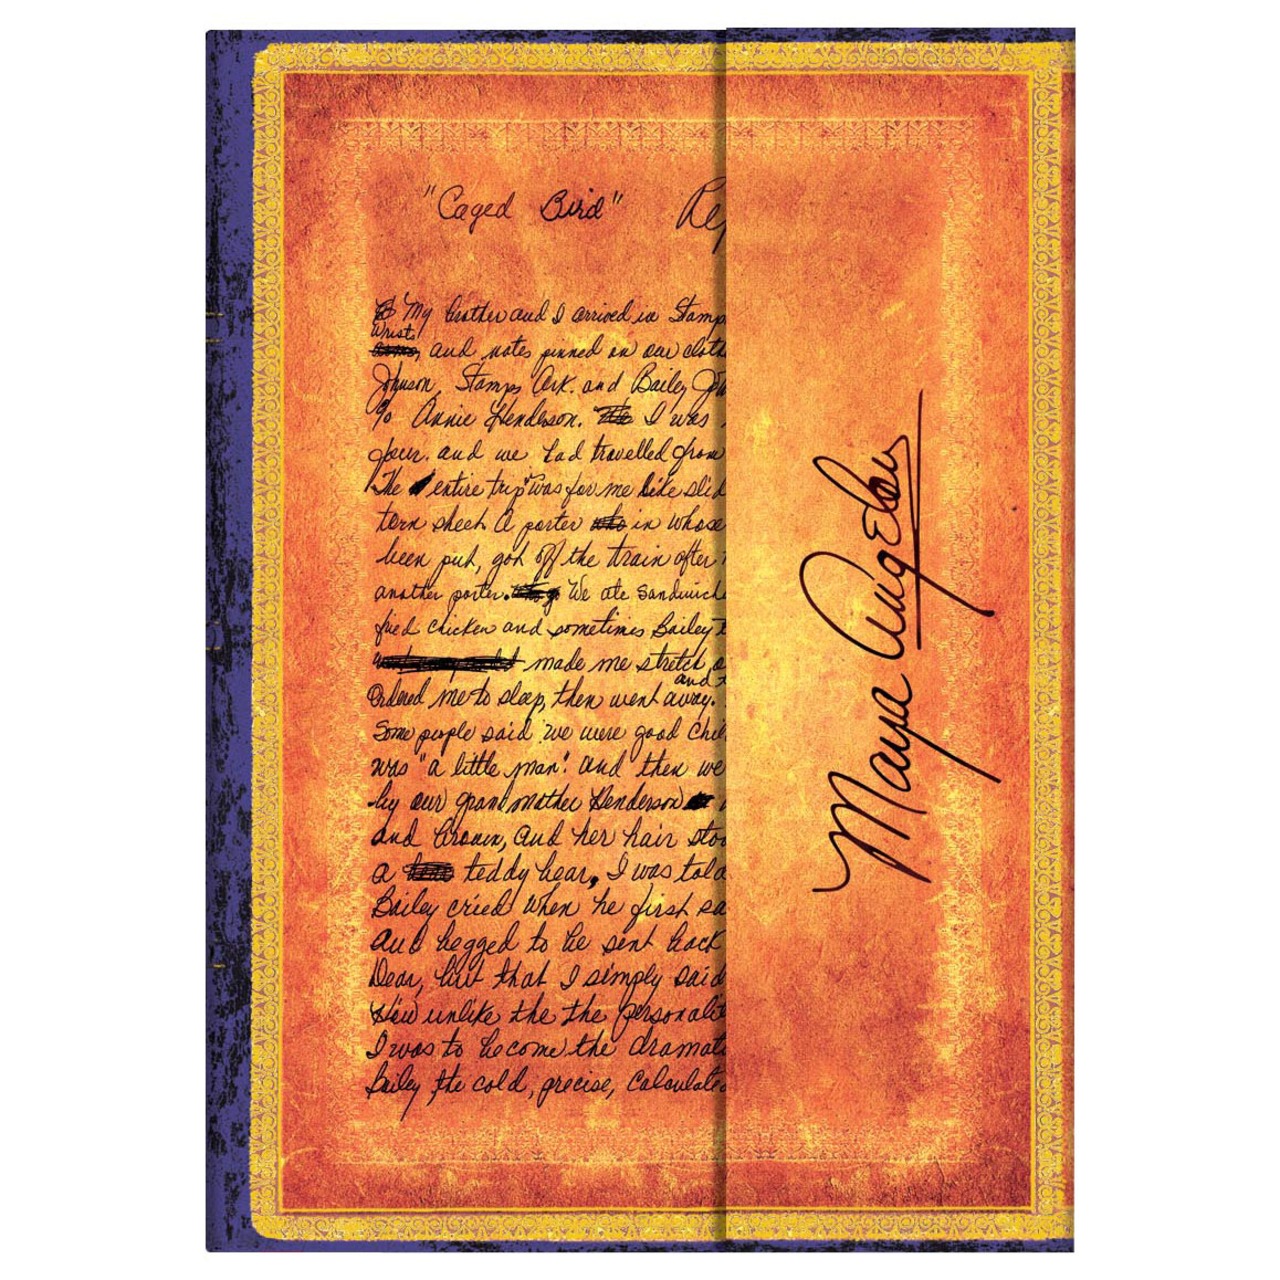 "Caged Bird" Rep
My brother and I arrived in Stamp
wrists
and notes pinned on our cloth
Johnson, Stamps Ark. and Bailey Joh
c/o Annie Henderson. I was
four. and we had travelled from
The entire trip was for me like slid
torn sheet. A porter in whose
been put, got off the train after
another porter. We ate sandwiche
fried chicken and sometimes Bailey
made me stretch o
and t
Ordered me to sleep, then went away.
Some people said we were good chil
was "a little man". and then we
by our grandmother Henderson
and brown, and her hair stoo
a teddy bear, I was told
Bailey cried when he first sa
and begged to be sent back
Dear, but that I simply said
How unlike the the personalit
I was to become the dramat
Bailey the cold, precise, calculate
Maya Angelou